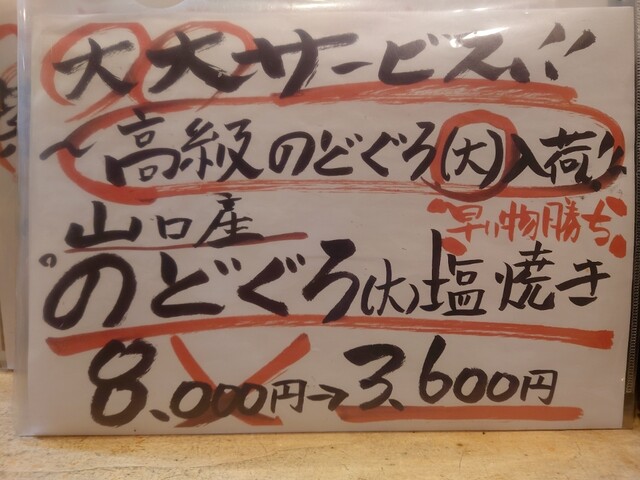 大大サービス!!
高級のどぐろ(大)入荷!!
山口産
早い物勝ち
のどぐろ(大)塩焼き
8,000円→3,600円